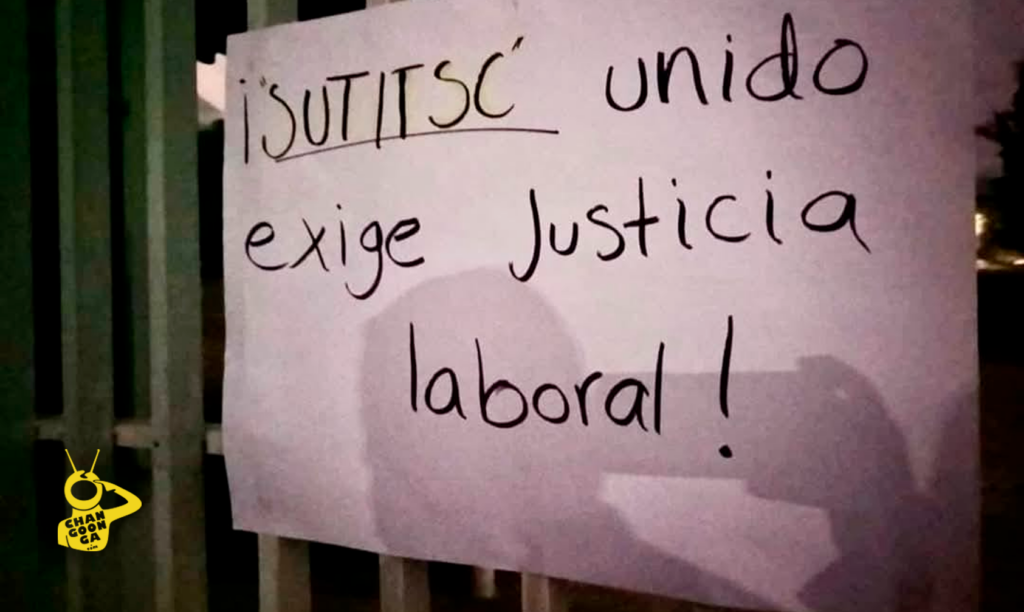 ¡"SUTITSC" unido
exige Justicia
laboral!
CHAN
GOON
GA
.com